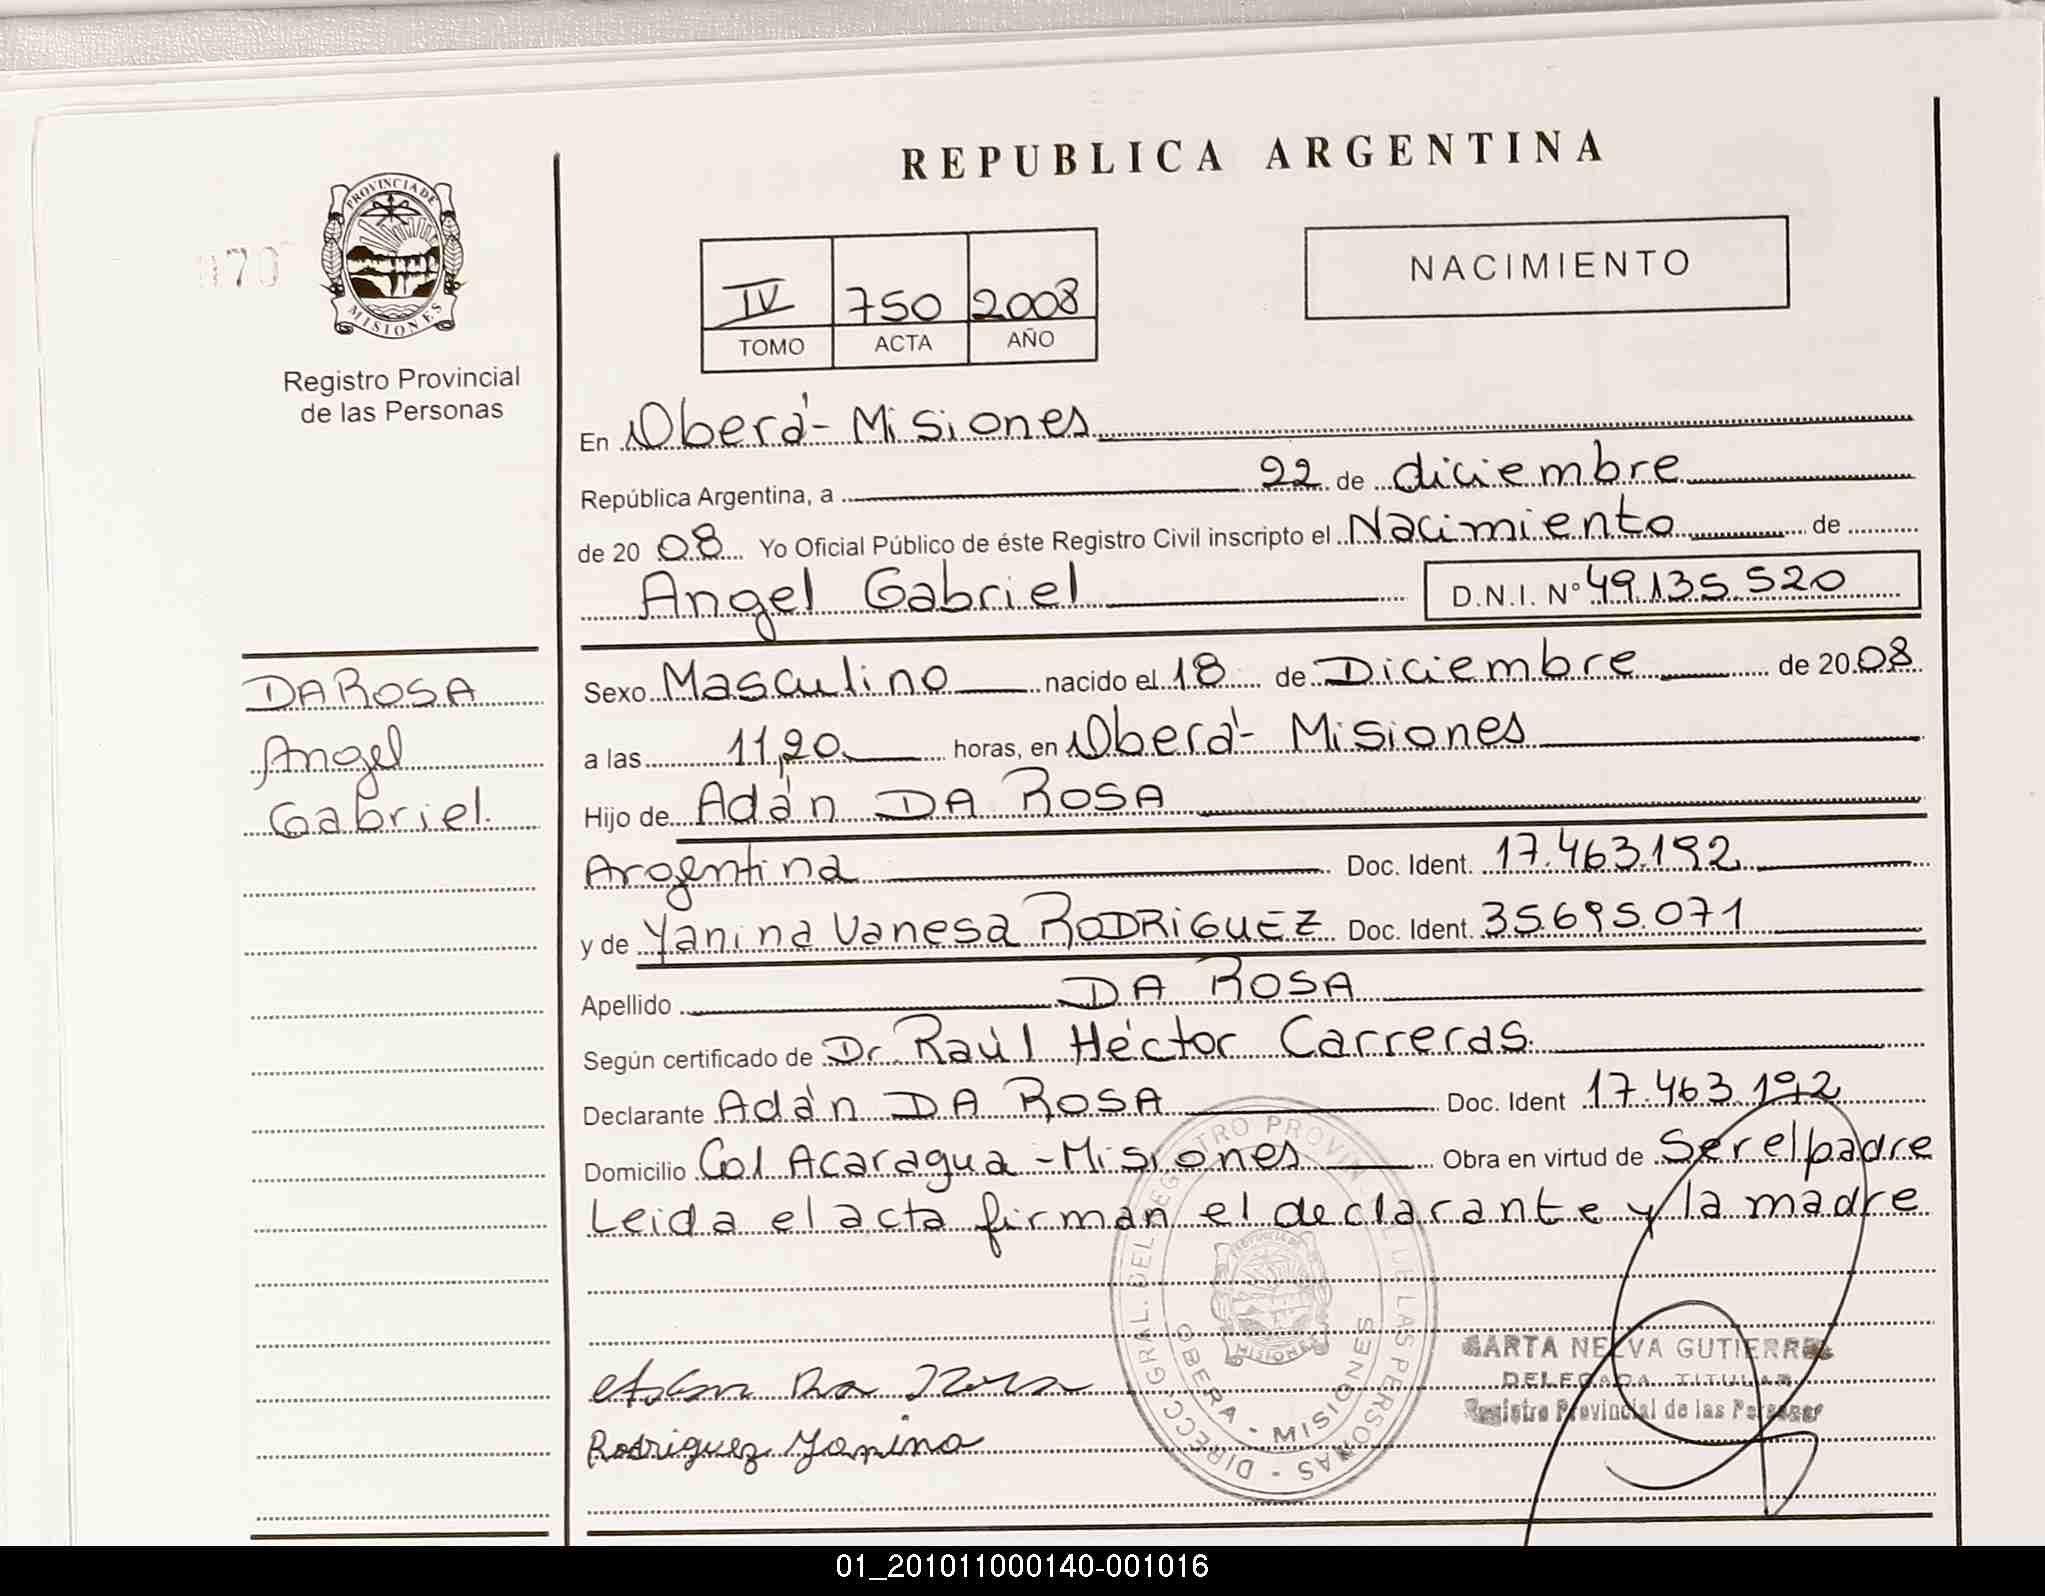 REPUBLICA ARGENTINA
PROVINCIA DE
MISIONES
070
Registro Provincial
de las Personas
IV 750 2008
TOMO ACTA AÑO
NACIMIENTO
En Oberá - Misiones
República Argentina, a 22 de diciembre
de 2008 Yo Oficial Público de éste Registro Civil inscripto el Nacimiento de
Angel Gabriel D.N.I. Nº 49.135.520
DA ROSA
Angel
Gabriel.
Sexo Masculino nacido el 18 de Diciembre de 2008
a las 11,20 horas, en Oberá - Misiones
Hijo de Adán DA ROSA
Argentina Doc. Ident. 17.463.192
y de Yanina Vanesa RODRIGUEZ Doc. Ident. 35.695.071
Apellido DA ROSA
Según certificado de Dr. Raúl Héctor Carreras.
Declarante Adán DA ROSA Doc. Ident 17.463.192
Domicilio Col Acaragua - Misiones Obra en virtud de Ser el padre
Leida el acta firman el declarante y la madre
DIRECC. GRAL. DEL REGISTRO PROVIN DE LAS PERSONAS
PROVINCIA DE
MISIONES
OBERA - MISIONES
NELVA GUTIERREZ
DELEGADA TITULAR
Registro Provincial de las Personas
Adan Da Rosa
Rodriguez Yanina
01_201011000140-001016